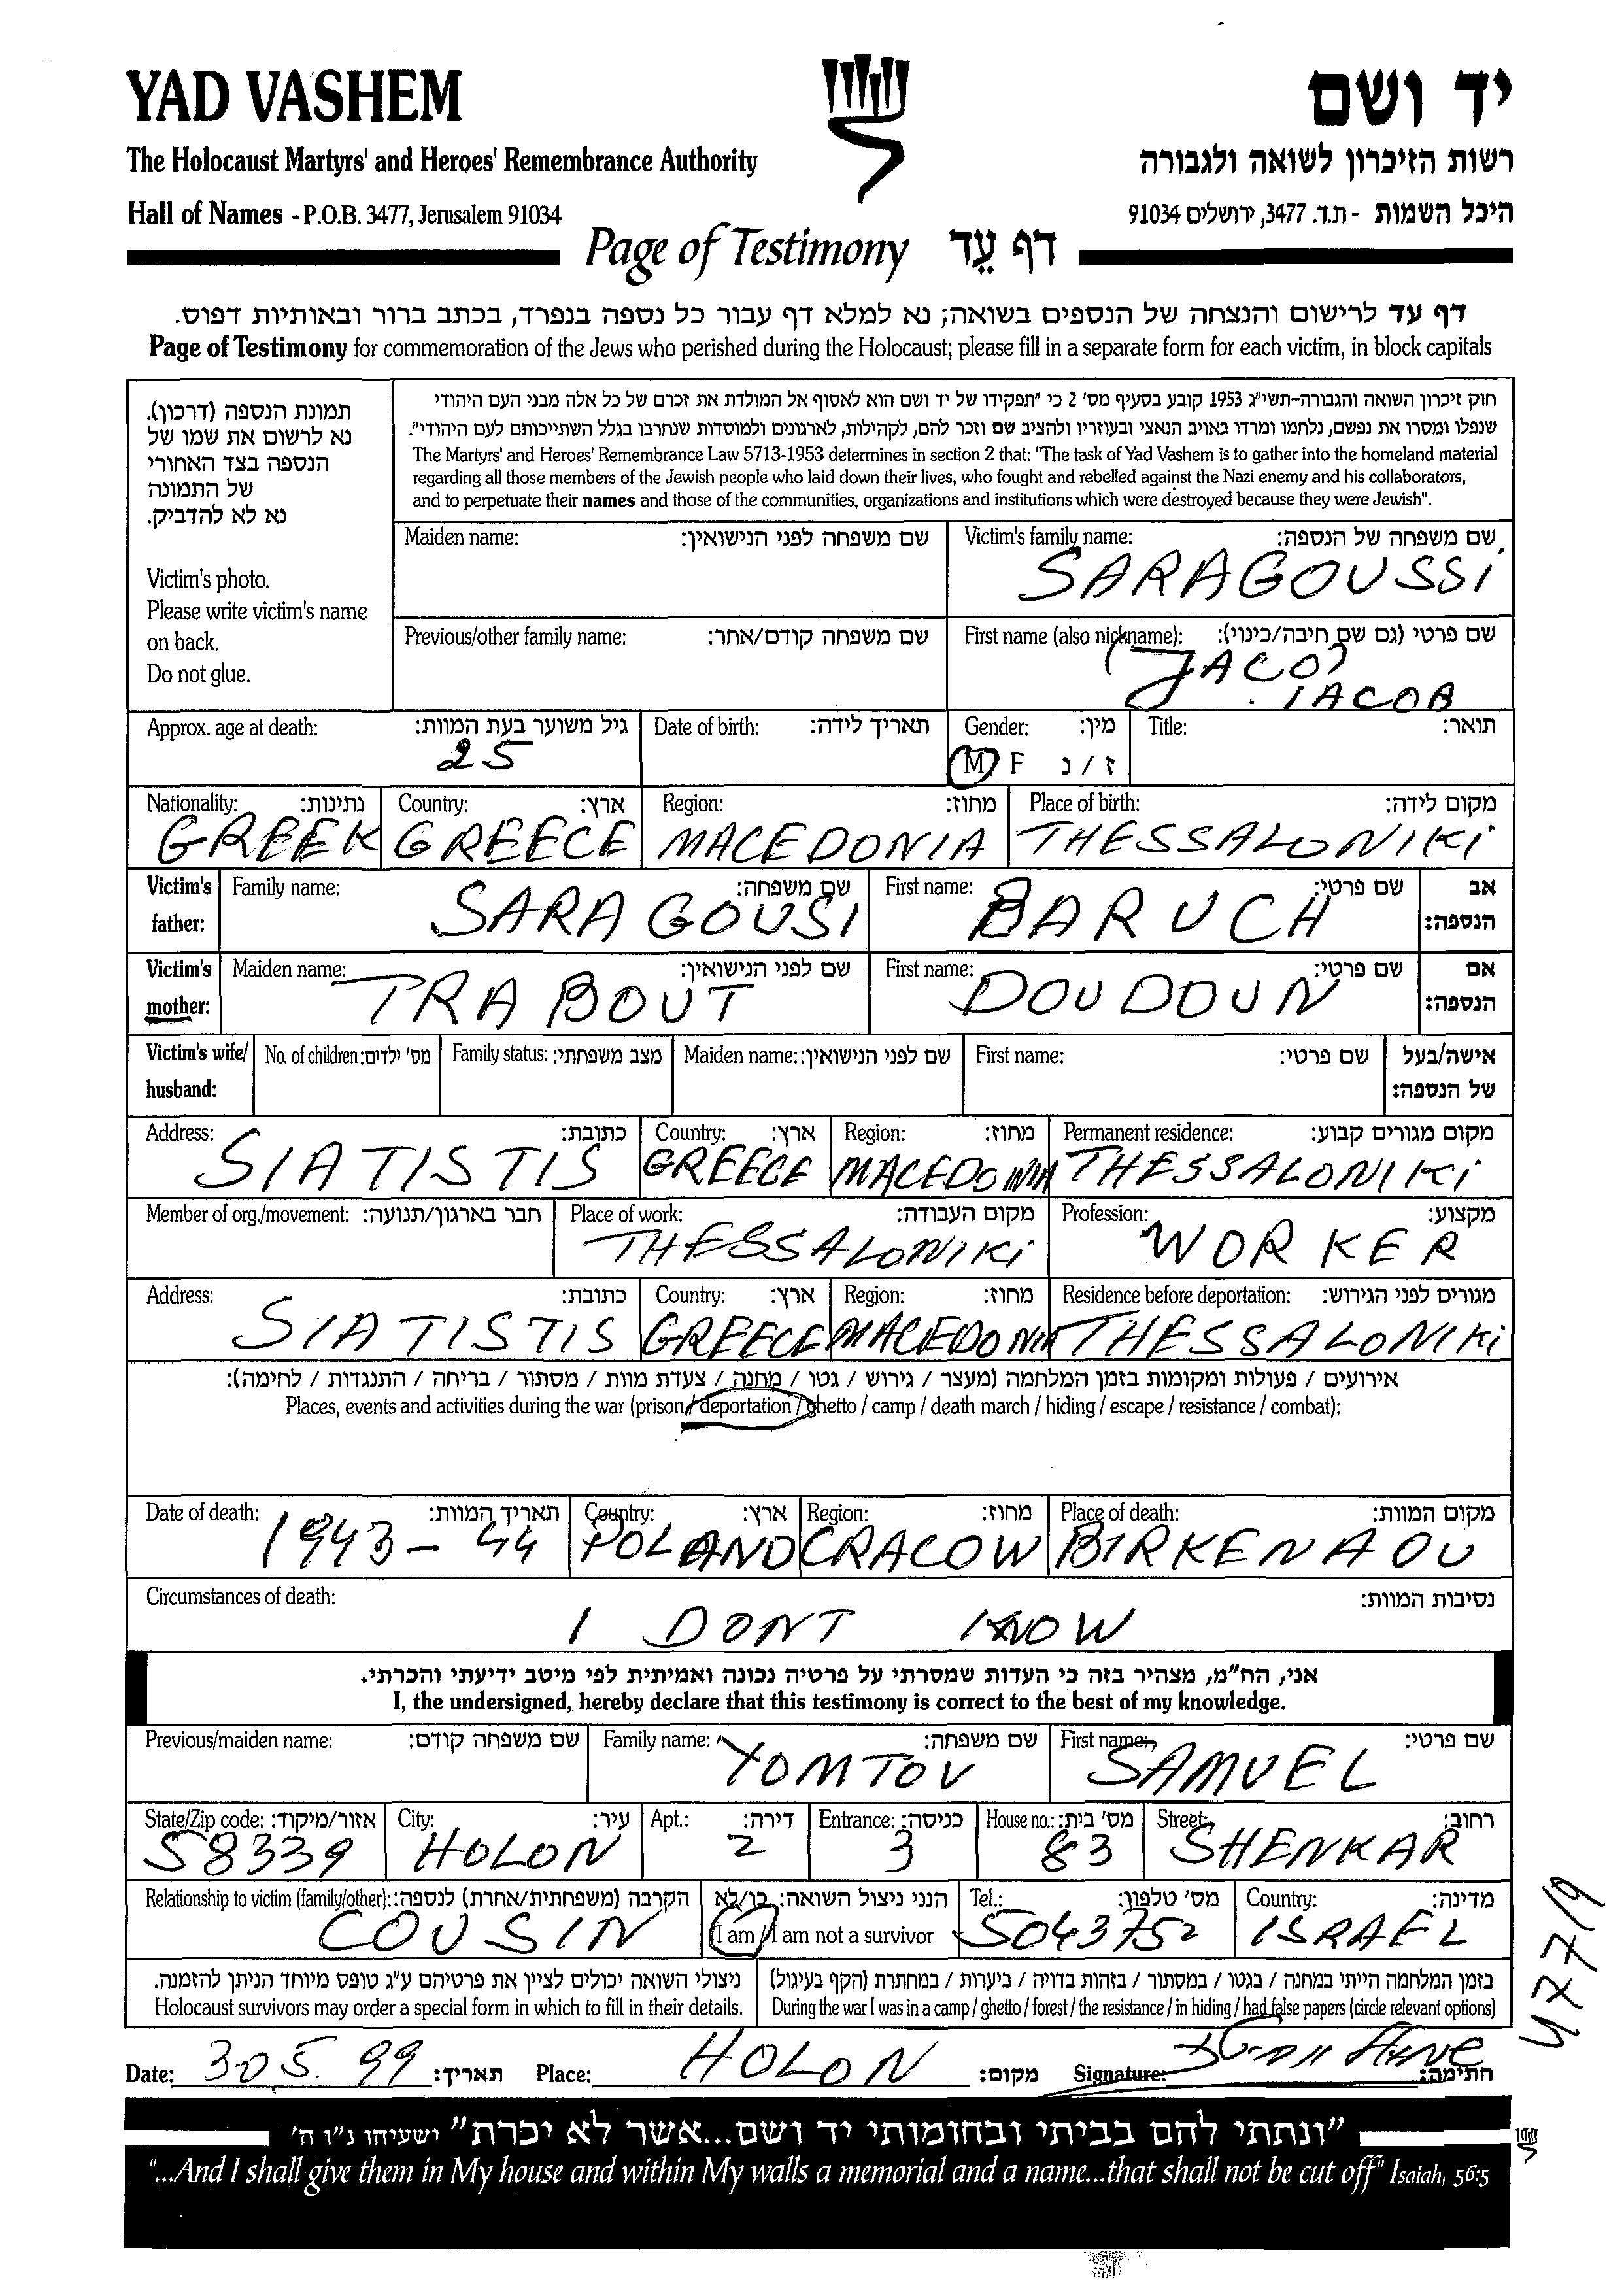 YAD VASHEM
יד ושם
The Holocaust Martyrs' and Heroes' Remembrance Authority
רשות הזיכרון לשואה ולגבורה
Hall of Names - P.O.B. 3477, Jerusalem 91034
היכל השמות - ת.ד. 3477, ירושלים 91034
Page of Testimony דף עֵד
דף עד לרישום והנצחה של הנספים בשואה; נא למלא דף עבור כל נספה בנפרד, בכתב ברור ובאותיות דפוס.
Page of Testimony for commemoration of the Jews who perished during the Holocaust; please fill in a separate form for each victim, in block capitals
תמונת הנספה (דרכון).
נא לרשום את שמו של
הנספה בצד האחורי
של התמונה
נא לא להדביק.
Victim's photo.
Please write victim's name
on back.
Do not glue.
חוק זיכרון השואה והגבורה-תשי"ג 1953 קובע בסעיף מס' 2 כי "תפקידו של יד ושם הוא לאסוף אל המולדת את זכרם של כל אלה מבני העם היהודי
שנפלו ומסרו את נפשם, נלחמו ומרדו באויב הנאצי ובעוזריו ולהציב שם וזכר להם, לקהילות, לארגונים ולמוסדות שנחרבו בגלל השתייכותם לעם היהודי".
The Martyrs' and Heroes' Remembrance Law 5713-1953 determines in section 2 that: "The task of Yad Vashem is to gather into the homeland material
regarding all those members of the Jewish people who laid down their lives, who fought and rebelled against the Nazi enemy and his collaborators,
and to perpetuate their names and those of the communities, organizations and institutions which were destroyed because they were Jewish".
Maiden name: שם משפחה לפני הנישואין:
Victim's family name: שם משפחה של הנספה:
SARAGOUSSI
Previous/other family name: שם משפחה קודם/אחר:
First name (also nickname): שם פרטי (גם שם חיבה/כינוי):
(JACO)
IACOB
Approx. age at death: גיל משוער בעת המוות:
25
Date of birth: תאריך לידה:
Gender: מין:
M F ז / נ
Title: תואר:
Nationality: נתינות: Country: ארץ: Region: מחוז: Place of birth: מקום לידה:
GREEK GREECE MACEDONIA THESSALONIKI
Victim's father: Family name: שם משפחה: First name: שם פרטי: אב הנספה:
SARAGOUSI BARUCH
Victim's mother: Maiden name: שם לפני הנישואין: First name: שם פרטי: אם הנספה:
TRABOUT DOUDOUN
Victim's wife/ husband: No. of children: מס' ילדים: Family status: מצב משפחתי: Maiden name: שם לפני הנישואין: First name: שם פרטי: אישה/בעל של הנספה:
Address: כתובת: Country: ארץ: Region: מחוז: Permanent residence: מקום מגורים קבוע:
SIATISTIS GREECE MACEDONIA THESSALONIKI
Member of org./movement: חבר בארגון/תנועה: Place of work: מקום העבודה: Profession: מקצוע:
THESSALONIKI WORKER
Address: כתובת: Country: ארץ: Region: מחוז: Residence before deportation: מגורים לפני הגירוש:
SIATISTIS GREECE MACEDONIA THESSALONIKI
אירועים / פעולות ומקומות בזמן המלחמה (מעצר / גירוש / גטו / מחנה / צעדת מוות / מסתור / בריחה / התנגדות / לחימה):
Places, events and activities during the war (prison / deportation / ghetto / camp / death march / hiding / escape / resistance / combat):
Date of death: תאריך המוות: Country: ארץ: Region: מחוז: Place of death: מקום המוות:
1943-44 POLAND CRACOW BIRKENAOU
Circumstances of death: נסיבות המוות:
I DONT KNOW
אני, הח"מ, מצהיר בזה כי העדות שמסרתי על פרטיה נכונה ואמיתית לפי מיטב ידיעתי והכרתי.
I, the undersigned, hereby declare that this testimony is correct to the best of my knowledge.
Previous/maiden name: שם משפחה קודם: Family name: שם משפחה: First name: שם פרטי:
YOMTOV SAMUEL
State/Zip code: אזור/מיקוד: City: עיר: Apt.: דירה: Entrance: כניסה: House no.: מס' בית: Street: רחוב:
58339 HOLON 2 3 83 SHENKAR
Relationship to victim (family/other): הקרבה (משפחתית/אחרת) לנספה: הנני ניצול השואה: כן/לא Tel.: מס' טלפון: Country: מדינה:
COUSIN I am / I am not a survivor 5043752 ISRAEL
ניצולי השואה יכולים לציין את פרטיהם ע"ג טופס מיוחד הניתן להזמנה.
Holocaust survivors may order a special form in which to fill in their details.
בזמן המלחמה הייתי במחנה / בגטו / במסתור / בזהות בדויה / ביערות / במחתרת (הקף בעיגול)
During the war I was in a camp / ghetto / forest / the resistance / in hiding / had false papers (circle relevant options)
Date: 30.5.99 תאריך: Place: HOLON מקום: Signature: חתימה:
477/9
"ונתתי להם בביתי ובחומותי יד ושם...אשר לא יכרת" ישעיהו נ"ו ה'
"...And I shall give them in My house and within My walls a memorial and a name...that shall not be cut off" Isaiah, 56:5